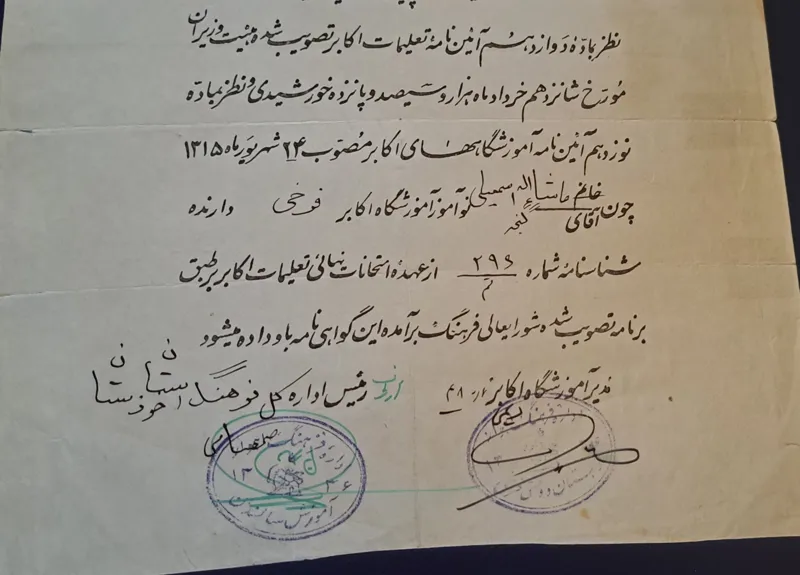 نظر بمادّهٔ دوازدهم آئین نامهٔ تعلیمات اکابر تصویب شده هیئت وزیران
مورّخ شانزدهم خرداد ماه هزار و سیصد و پانزده خورشیدی و نظر بمادّه
نوزدهم آئین نامه آموزشگاههای اکابر مصوّب ۲۴ شهریور ماه ۱۳۱۵
چون خانم آقای ماشاءالله اسمعیلی نوآموز آموزشگاه اکابر فرخی دارنده
شناسنامهٔ شماره ۲۹۶ از عهدهٔ امتحانات نهائی تعلیمات اکابر بر طبق
برنامه تصویب شده شورایعالی فرهنگ برآمده این گواهی نامه باو داده میشود
مدیر آموزشگاه اکابر رئیس اداره کل فرهنگ استان خوزستان
اداره فرهنگ
۱۳ ۳۶
آموزش سالمندان
اداره فرهنگ
دبستان